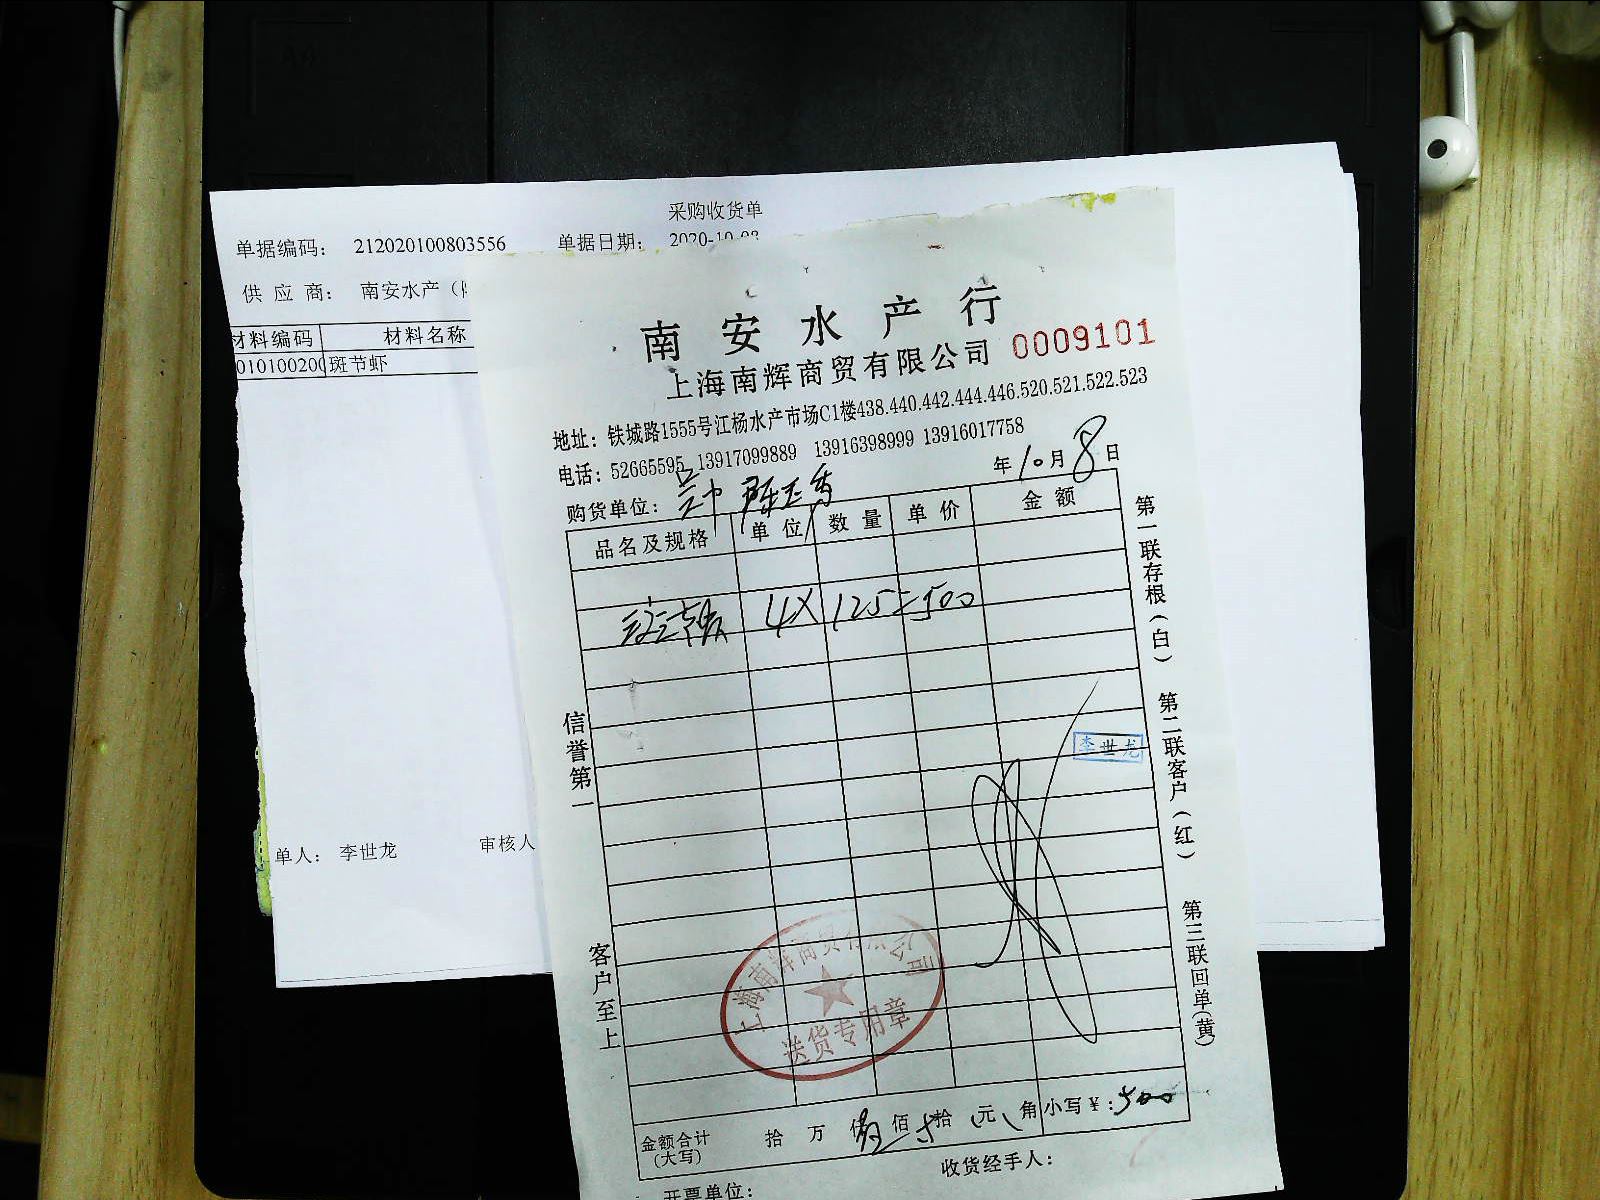 采购收货单
单据编码： 212020100803556 单据日期： 2020-10-08
供 应 商： 南安水产（
材料编码 材料名称
01010020 斑节虾
单人： 李世龙 审核人
南安水产行
上海南辉商贸有限公司 0009101
地址：铁城路1555号江杨水产市场C1楼438.440.442.444.446.520.521.522.523
电话：52665595 13917099889 13916398999 13916017758
年10月8日
购货单位：
品名及规格 单位 数量 单价 金额
4X125=500
信誉第一
客户至上
第一联存根（白） 第二联客户（红） 第三联回单（黄）
李世龙
上海南辉商贸有限公司
送货专用章
金额合计（大写） 拾 万 仟 佰 拾 元 角 小写￥：500
收货经手人：
开票单位：